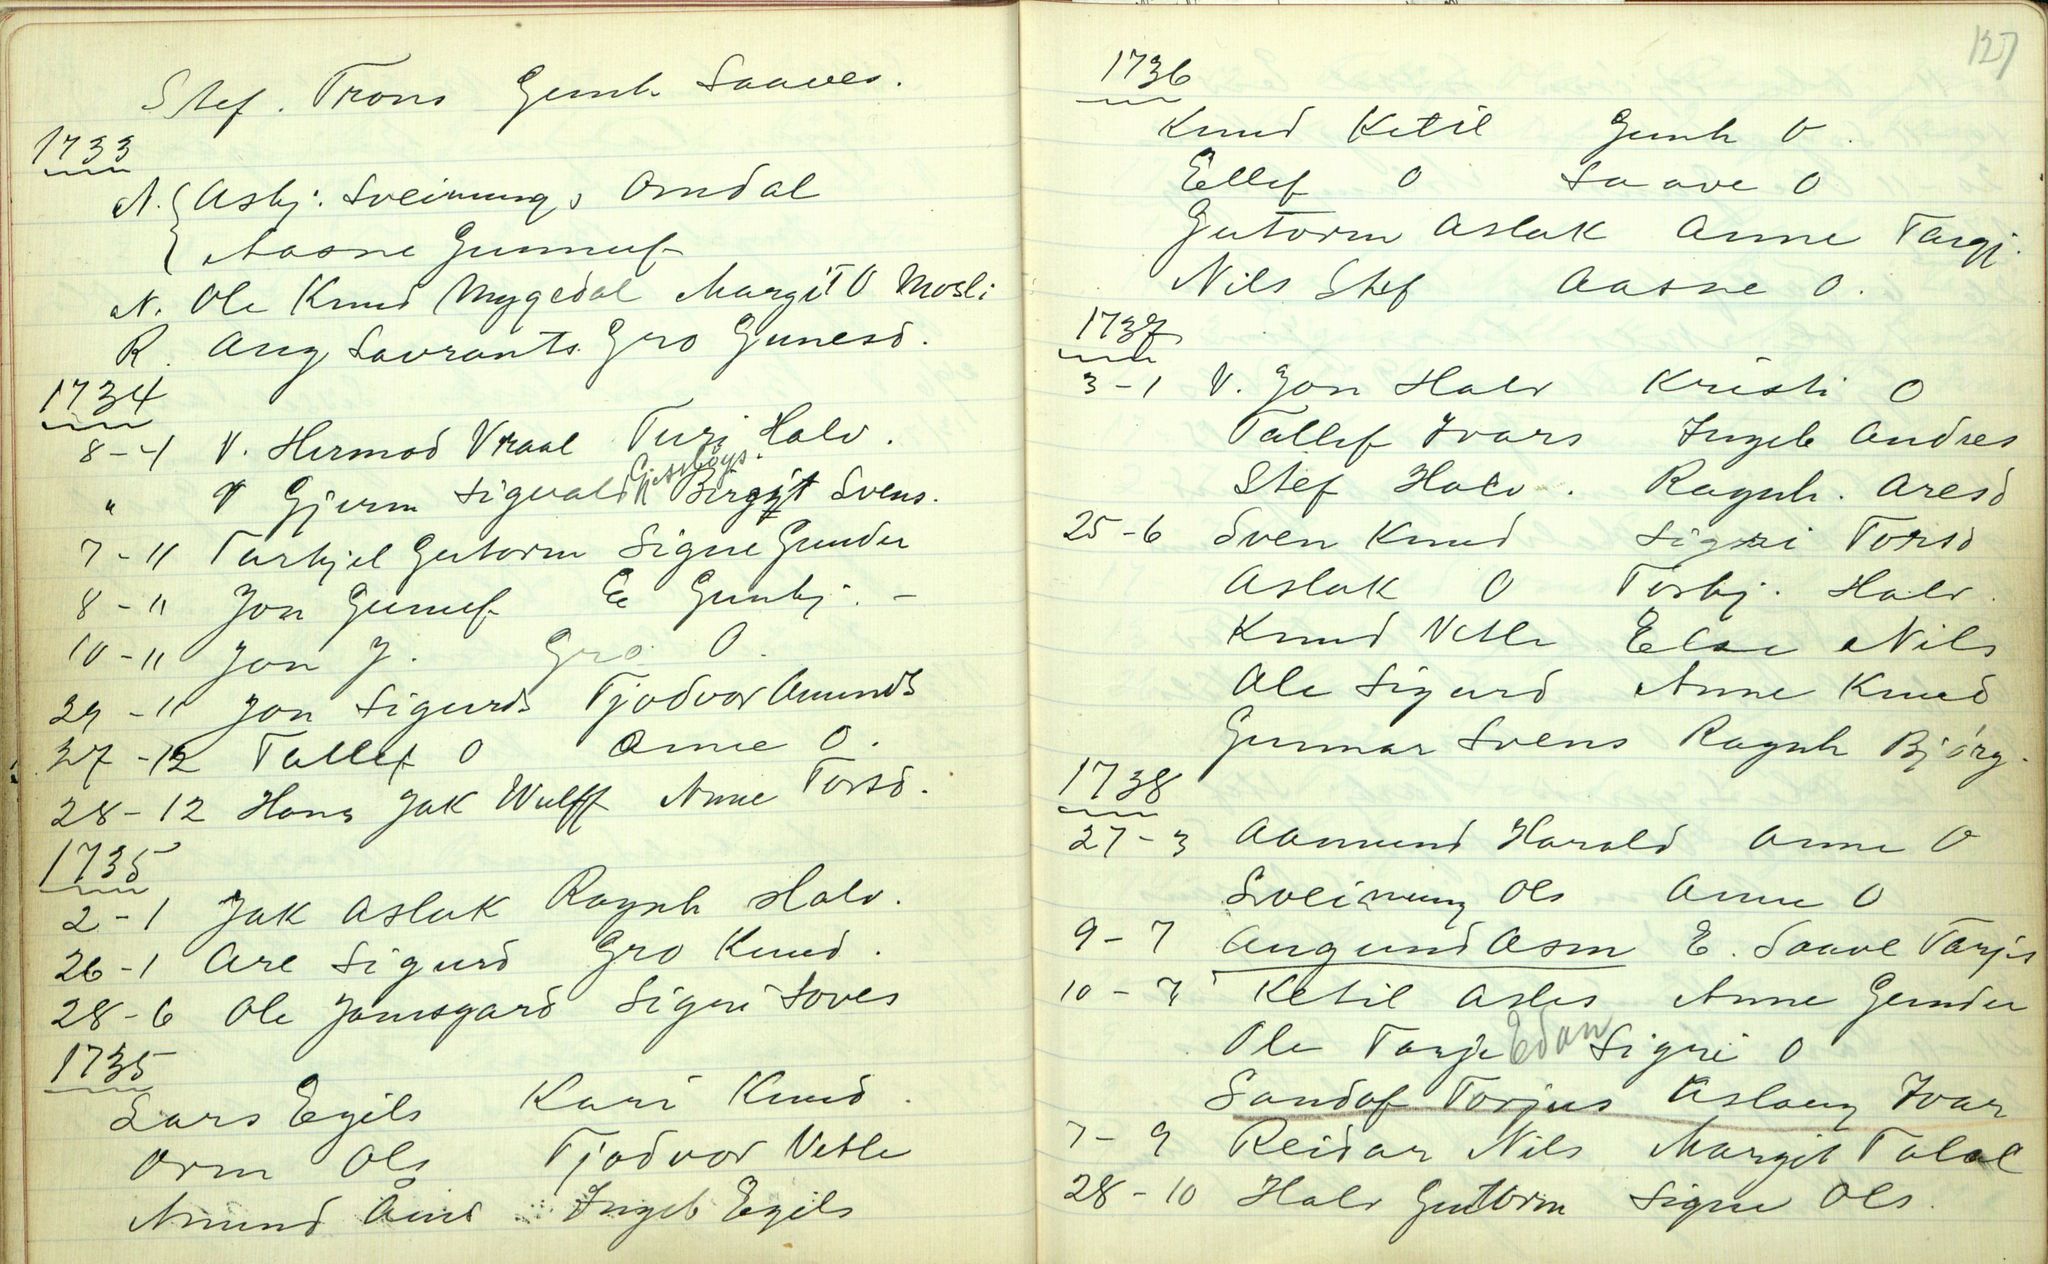 Stef. Trons Gunh Saaves.
1733
N. Asbj. Sveinungs Omdal
Aasne Gunnuf
N. Ole Knud Mygedal Margit O Mosli
R. Aug Savrants. Gro Gunesd.
1734
8-4 V. Hermod Vraal Turi Halv.
" V Gjerm Sigvald Birgit Svens.
7-11 Tarkjel Gutorm Signe Gunder
8-11 Jon Gunuf E Gunbj. -
10-11 Jon J. Gro O.
29-11 Jon Sigurds Tjodvor Amunds
27-12 Tallef O Anne O.
28-12 Hans Jak Wulff Anne Torsd.
1735
2-1 Jak Aslak Ragnh Halv.
26-1 Are Sigurd Gro Knud.
28-6 Ole Jonsgard Signi Soves
1735
Lars Egils Kari Knud.
Orm Ols Tjodvor Vetle
Amund Ingeb Egils
127
1736
Knud Ketil Gunh O.
Ellef O Saave O
Gutorm Aslak Anne Targj.
Nils Stef Aasne O.
1737
3-1 V. Jon Halv Kristi O
Tallef Ivars Ingeb Andres
Stef Halv. Ragnh. Aresd
25-6 Sven Knud Sigri Torsd
Aslak O Torbj. Halv.
Knud Vetle Else Nils
Ole Sigurd Anne Knud
Gunnar Svens Ragnh Bjørg.
1738
27-3 Aamund Harald Anne O
Sveinung Ols Anne O
9-7 Augund Asm E. Saave Tarjs
10-7 Ketil Asles Anne Gunder
Ole Tarje Edan Sigri O
Sandof Torjus Aslaug Ivar
7-9 Reidar Nils Margit Talal
28-10 Halv Guttorm Signe Ols.